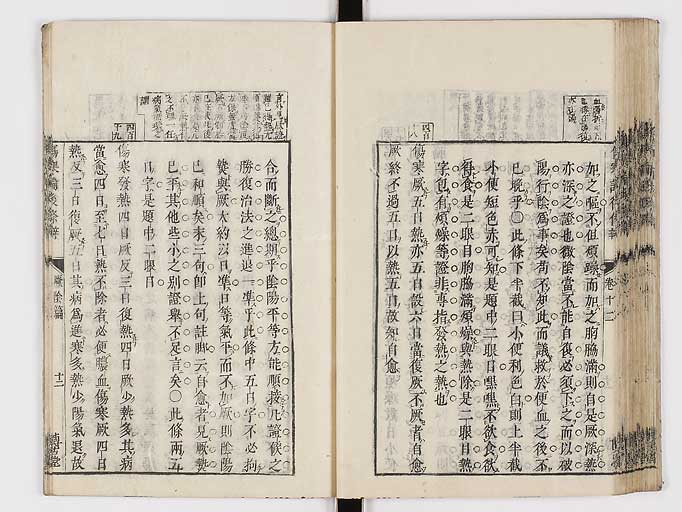 加之嘔不但煩躁而加之胸脇滿則自是厥深熱
亦深之證也徵陰當不能自復必須下之而以破
陽行陰爲事矣苟不知此而議救於便血之後不
已晚乎○此條下半截曰小便利色白則上半截
小便短色赤可知是題中二眼目嘿嘿不欲食欲
得食是二眼目胸脇滿煩燥與熱除是二眼目熱
字包有煩燥等證非專指發熱之熱也
傷寒厥五日熱亦五日設六日當復厥不厥者自愈
厥終不過五日以熱五日故知自愈
四百
十八
卷十二
合而斷之總期乎陰陽平等方能順接凡證候之
勝復治法之進退一準乎此條中五日字不必拘
熱與厥大約以日準日等氣平而不加厥則陰陽
已和順矣末三句卽上句註脚云自愈者見厥熱
已平其他些小之別證舉不足言矣○此條兩五
日字是題中二眼目
傷寒發熱四日厥反三日復熱四日厥少熱多其病
當愈四日至七日熱不除者必便膿血傷寒厥四日
熱反三日復厥五日其病爲進寒多熱少陽氣退故
四百
十九
厥陰篇
十二